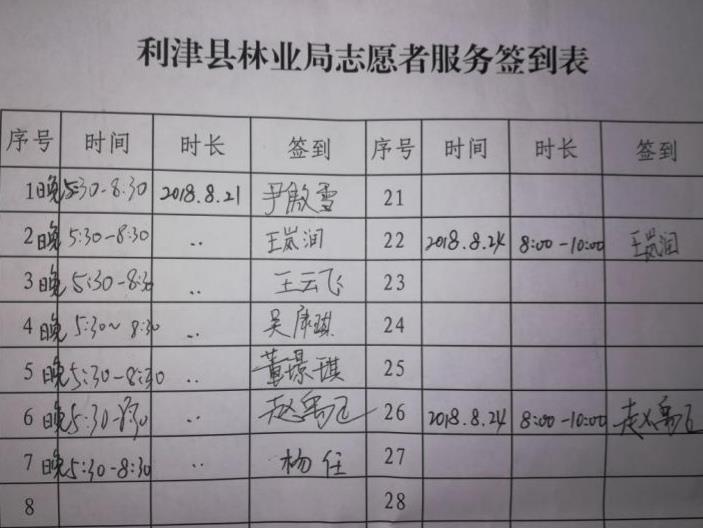 利津县林业局志愿者服务签到表
序号 时间 时长 签到 序号 时间 时长 签到
1 晚5:30-8:30 2018.8.21 尹傲雪 21
2 晚5:30-8:30 .. 王岚润 22 2018.8.24 8:00-10:00 王岚润
3 晚5:30-8:30 .. 王云飞 23
4 晚5:30~8:30 .. 吴康琪 24
5 晚5:30-8:30 .. 董璟琪 25
6 晚5:30-8:30 .. 赵禹 26 2018.8.24 8:00-10:00 赵禹
7 晚5:30-8:30 .. 杨任 27
8 28